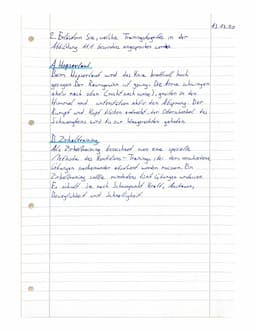 12.12.20
2. Erläutern Sie, welche Trainingsbegriffe in der
Abbildung M1 besonders angesprochen werden
A Hopserlauf
Beim Hopserlauf wird das Knie kraftvoll hoch
gezogen. Der Raumgewinn ist gering. Die Arme schwingen
aktiv nach oben (nicht nach vorne), greifen in den
Himmel und unterstützen aktiv den Absprung. Der
Rumpf und Kopf bleiben aufrecht, der Oberschenkel des
Schwungbeins wird bis zur Waagerechten gehoben
D. Zirkeltraining
Als Zirkeltraining bezeichnet man eine spezielle
Methode des Konditions-Trainings, bei dem verschiedene
Übungen nacheinander absolviert werden müssen. Ein
Zirkeltraining sollte mindestens fünf Übungen
Es schult je nach Schwerpunkt Kraft, Ausdauer,
Beweglichkeit und Schnelligkeit.